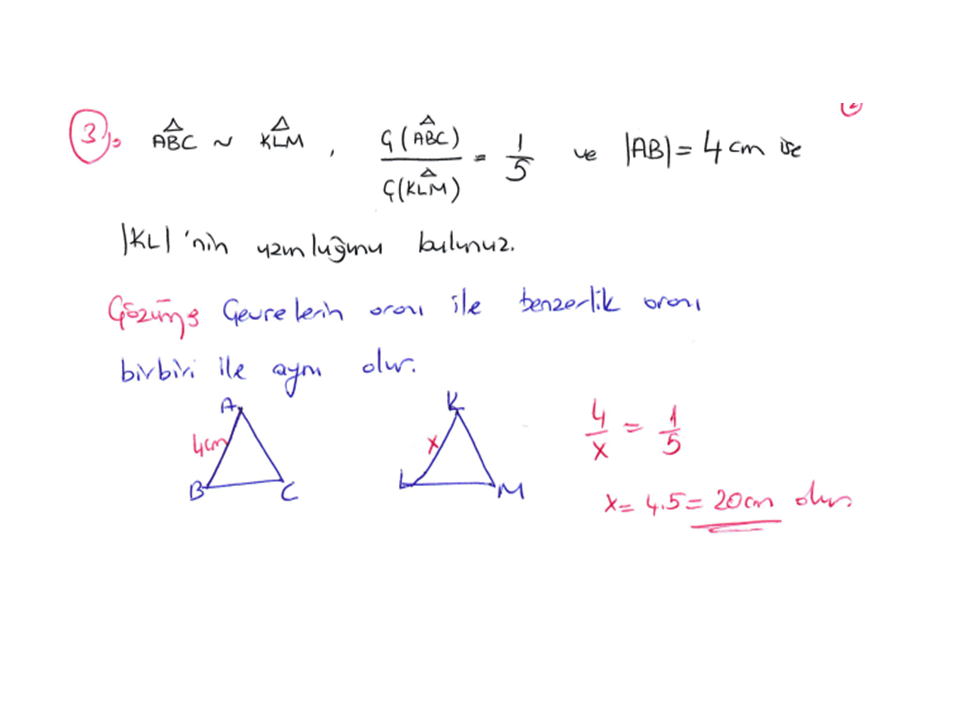 ②
③: ABC ~ KLM , Ç(ABC) / Ç(KLM) = 1/5 ve |AB| = 4 cm ise
|KL| 'nin uzunluğunu bulunuz.
Çözüm: Çevrelerin oranı ile benzerlik oranı
birbiri ile aynı olur.
A K
4cm x 4/x = 1/5
B C L M
x = 4.5 = 20cm olur.